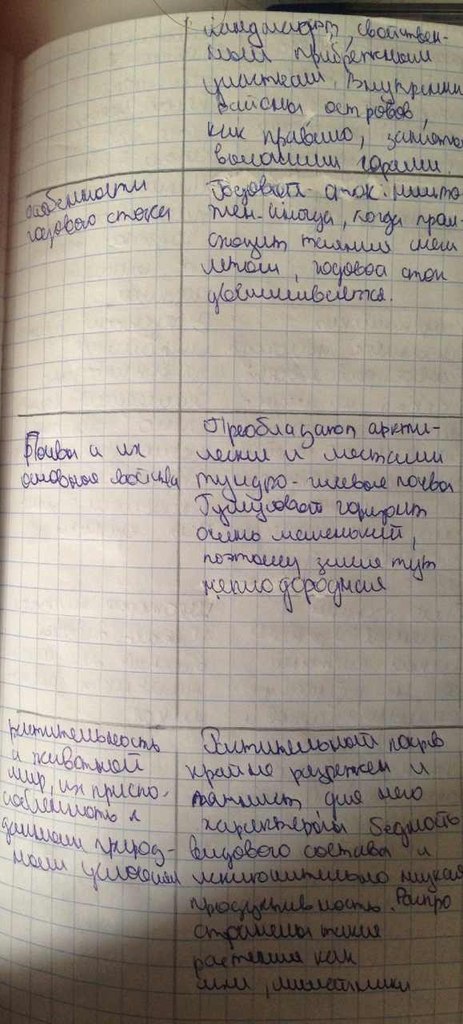 ландшафт, свойствен-
ный прибрежным
участкам. Внутренни
районы островов,
как правило, заняты
высокими горами.
особенности
годового стока
Годовой сток ничто
жен. Иногда, когда прои-
сходит таяние снега
летом, годовой сток
увеличивается.
Почвы и их
основные свойства
Преобладают аркти-
ческие и местами
тундро-глеевые почвы
Гумусовый горизонт
очень маленький,
поэтому земля тут
неплодородная
растительность
и животный
мир, их приспо-
собленность к
данным природ-
ным условиям
Растительный покров
крайне разрежен и
пятнист для него
характерны бедность
видового состава и
исключительно низкая
продуктивность. Распро
странены такие
растения как
мхи, лишайники